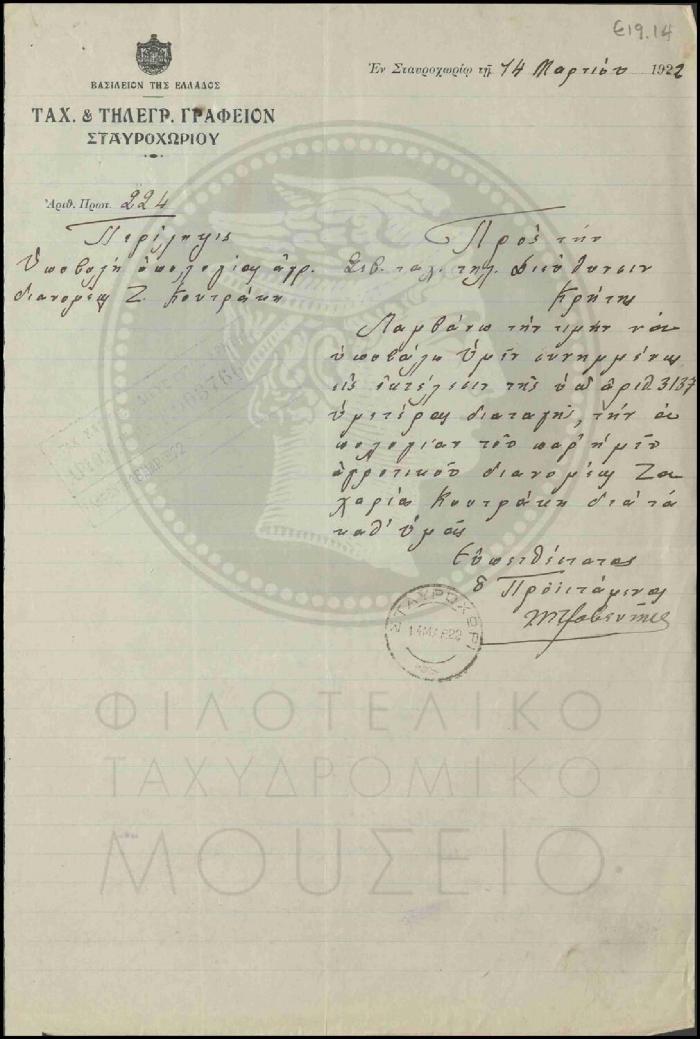 Ε19.14
Ἐν Σταυροχωρίῳ τῇ 14 Μαρτίου 1922
ΒΑΣΙΛΕΙΟΝ ΤΗΣ ΕΛΛΑΔΟΣ
ΤΑΧ. & ΤΗΛΕΓΡ. ΓΡΑΦΕΙΟΝ
ΣΤΑΥΡΟΧΩΡΙΟΥ
Ἀριθ. Πρωτ. 224
Περίληψις
Ὑποβολὴ ἀπολογίας ἀγρ.
διανομέως Ζ. Κουτράκη
Πρὸς τὴν
Σεβ. ταχ. τηλ. Διεύθυνσιν
Κρήτης
Λαμβάνω τὴν τιμὴν νὰ
ὑποβάλω Ὑμῖν συνημμένως
εἰς ἐκτέλεσιν τῆς ὑπ' ἀριθ. 3137
ὑμετέρας διαταγῆς, τὴν ἀ
πολογίαν τοῦ παρ' ἡμῖν
ἀγροτικοῦ διανομέως Ζα
χαρία Κουτράκη διὰ τὰ
καθ' ὑμᾶς
Εὐπειθέστατος
ὁ Προϊστάμενος
ΣΤΑΥΡΟΧΩΡΙ
14 ΜΑΡ 22
ΦΙΛΟΤΕΛΙΚΟ
ΤΑΧΥΔΡΟΜΙΚΟ
ΜΟΥΣΕΙΟ